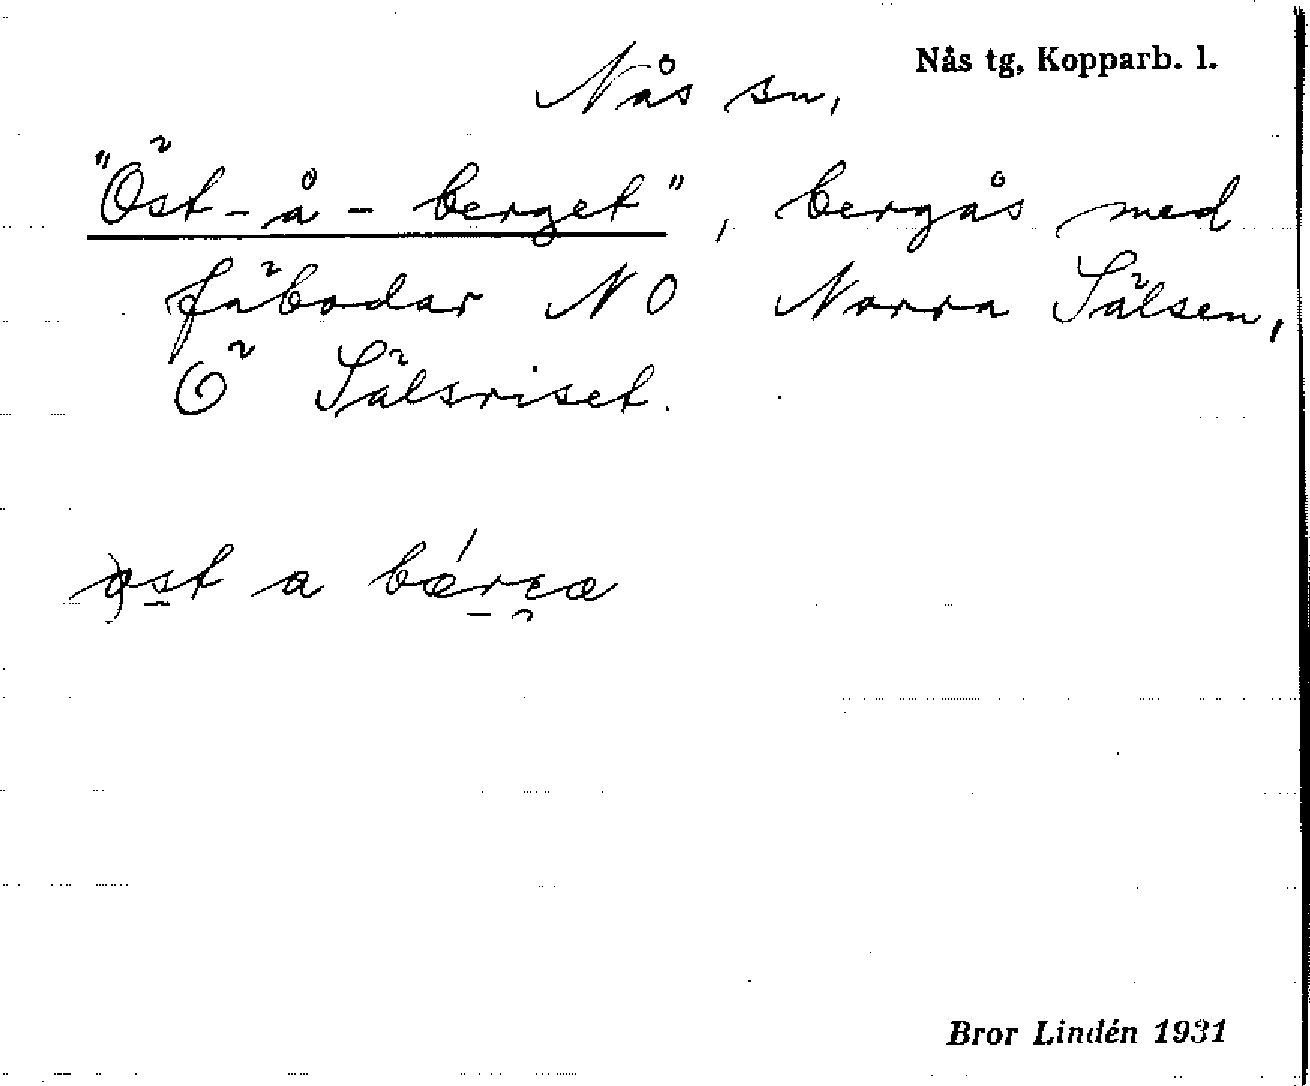 Nås tg, Kopparb. l.
Nås sn,
"Öst-å-berget", bergås med
fäbodar NO Norra Sälsen,
Ö Sälsriset.
a bǽrɛa
Bror Lindén 1931